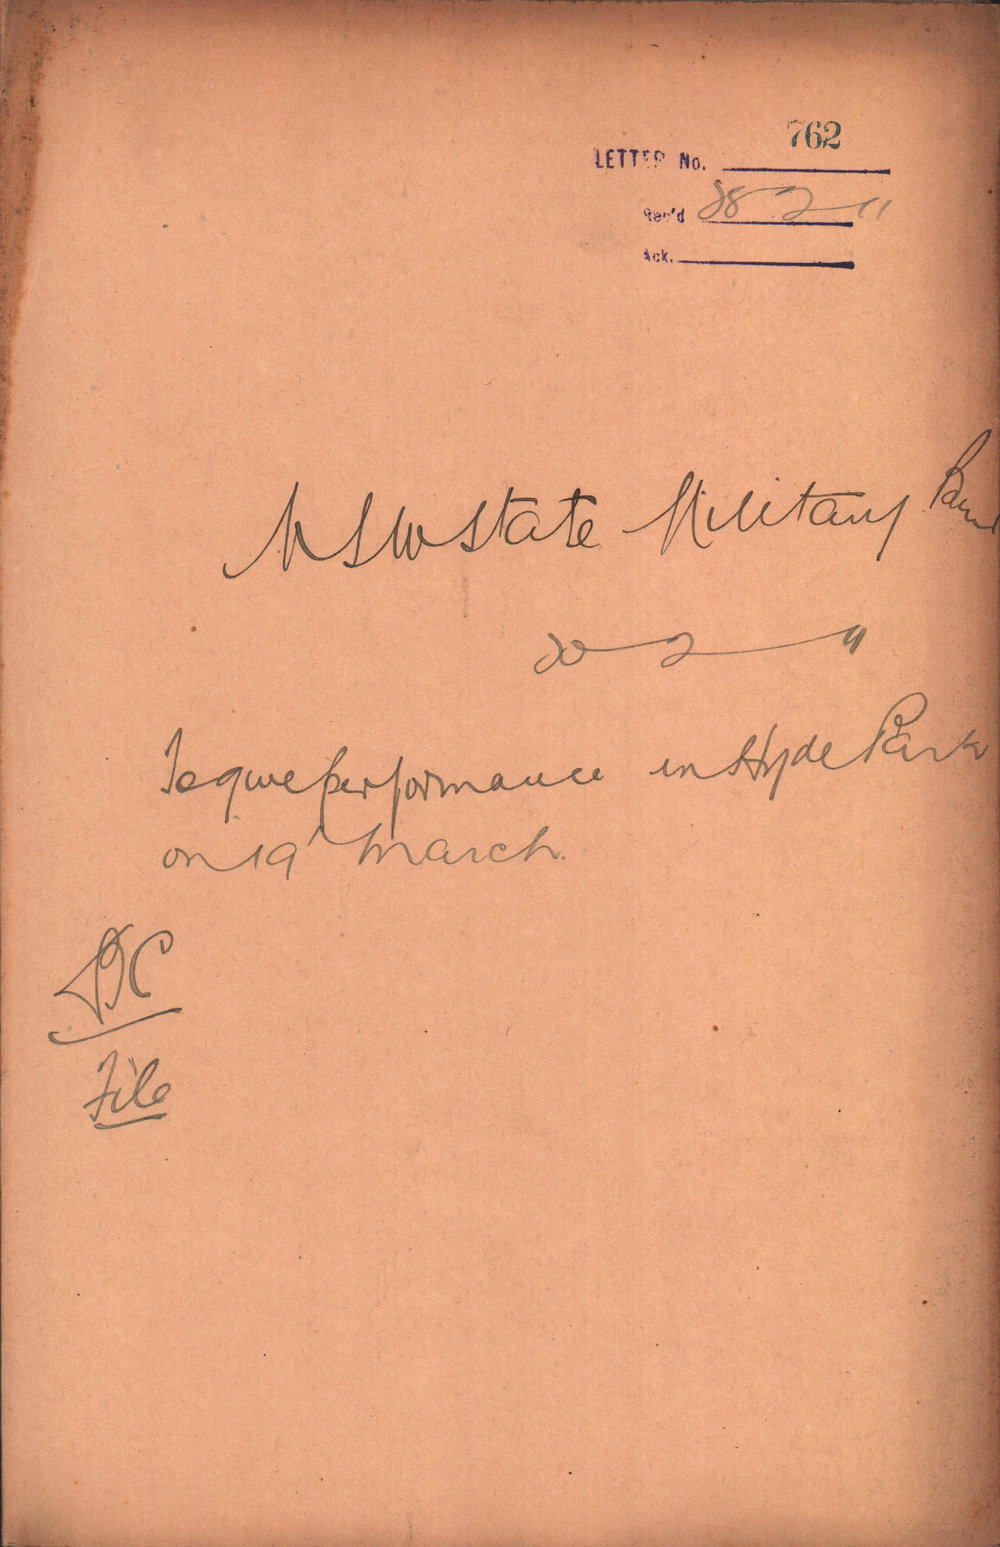 762
LETTER No.
Rec'd 28 2 11
Ack.
NSW State Military Band
20 2 11
To give performance in Hyde Park
on 19' March.
DC
File